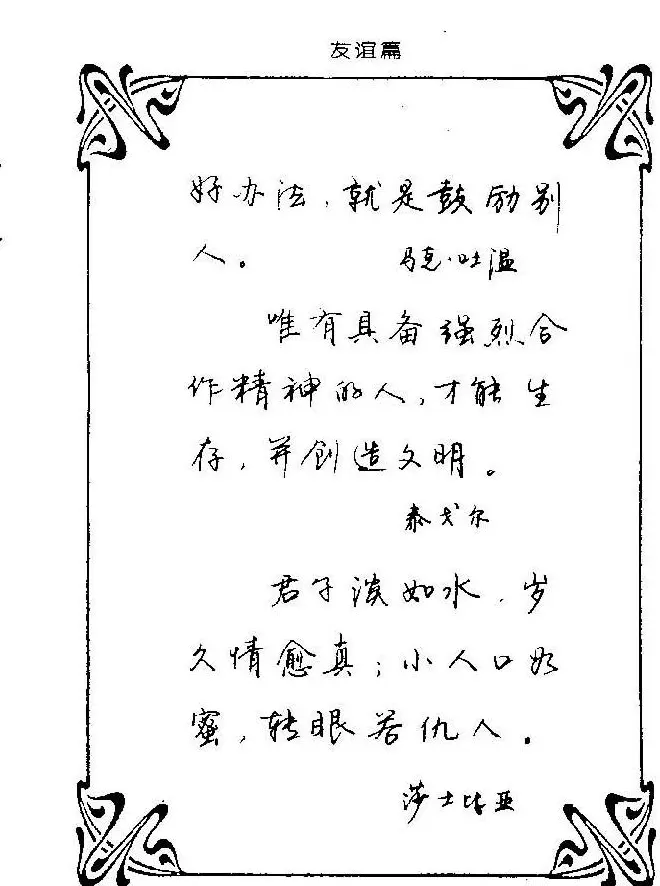 友谊篇
好办法，就是鼓励别
人。 马克·吐温
唯有具备强烈合
作精神的人，才能生
存，并创造文明。
泰戈尔
君子淡如水，岁
久情愈真；小人口如
蜜，转眼若仇人。
莎士比亚